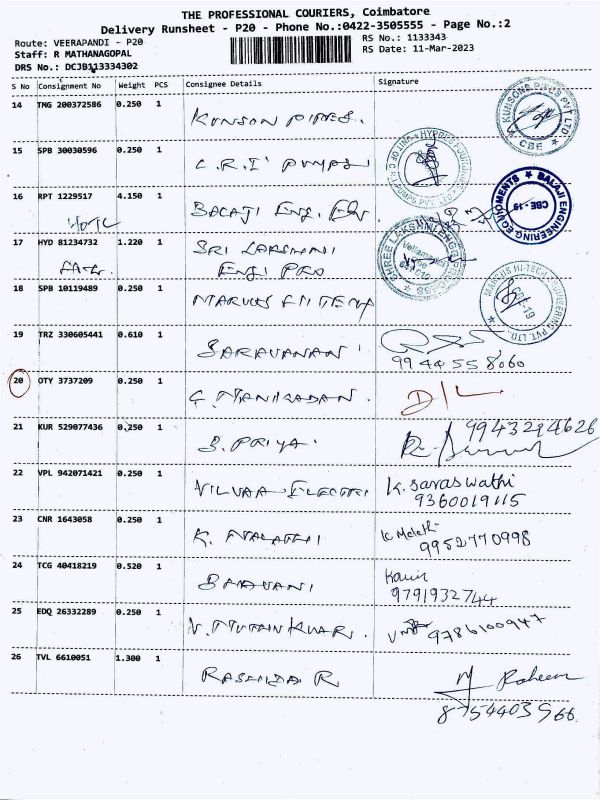 THE PROFESSIONAL COURIERS, Coimbatore
Delivery Runsheet - P20 - Phone No.:0422-3505555 - Page No.:2
Route: VEERAPANDI - P20
RS No.: 1133343
Staff: R MATHANAGOPAL
RS Date: 11-Mar-2023
DRS No.: DCJB113334302
S No Consignment No Weight PCS Consignee Details Signature
14 TNG 200372586 0.250 1
KUNSON PIPES.
KUNSONS PIPES PVT LTD. CBE
15 SPB 30030596 0.250 1
C.R.I PUMPS
16 RPT 1229517 4.150 1
BALAJI ENG.
BALAJI ENGINEERING EQUIPMENTS CBE-19
17 HYD 81234732 1.220 1
SRI LAKSHMI
ENGI PRO
18 SPB 10119489 0.250 1
MARCUS HI-TECH ENGINEERING PVT. LTD.
19 TRZ 330605441 0.610 1
SARAVANAN
99 44 55 8060
20 OTY 3737209 0.250 1
G. MANIKANDAN.
D/L
21 KUR 529077436 0.250 1
S. PRIYA.
9943294626
22 VPL 942071421 0.250 1
K. Saraswathi
9360019115
23 CNR 1643058 0.250 1
K. MALATHI
K Malathi
9952770998
24 TCG 40418219 0.520 1
BARVANI
9791932744
25 EDQ 26332289 0.250 1
9786100947
26 TVL 6610051 1.300 1
RASHIDA R
M Raheem
8754403566